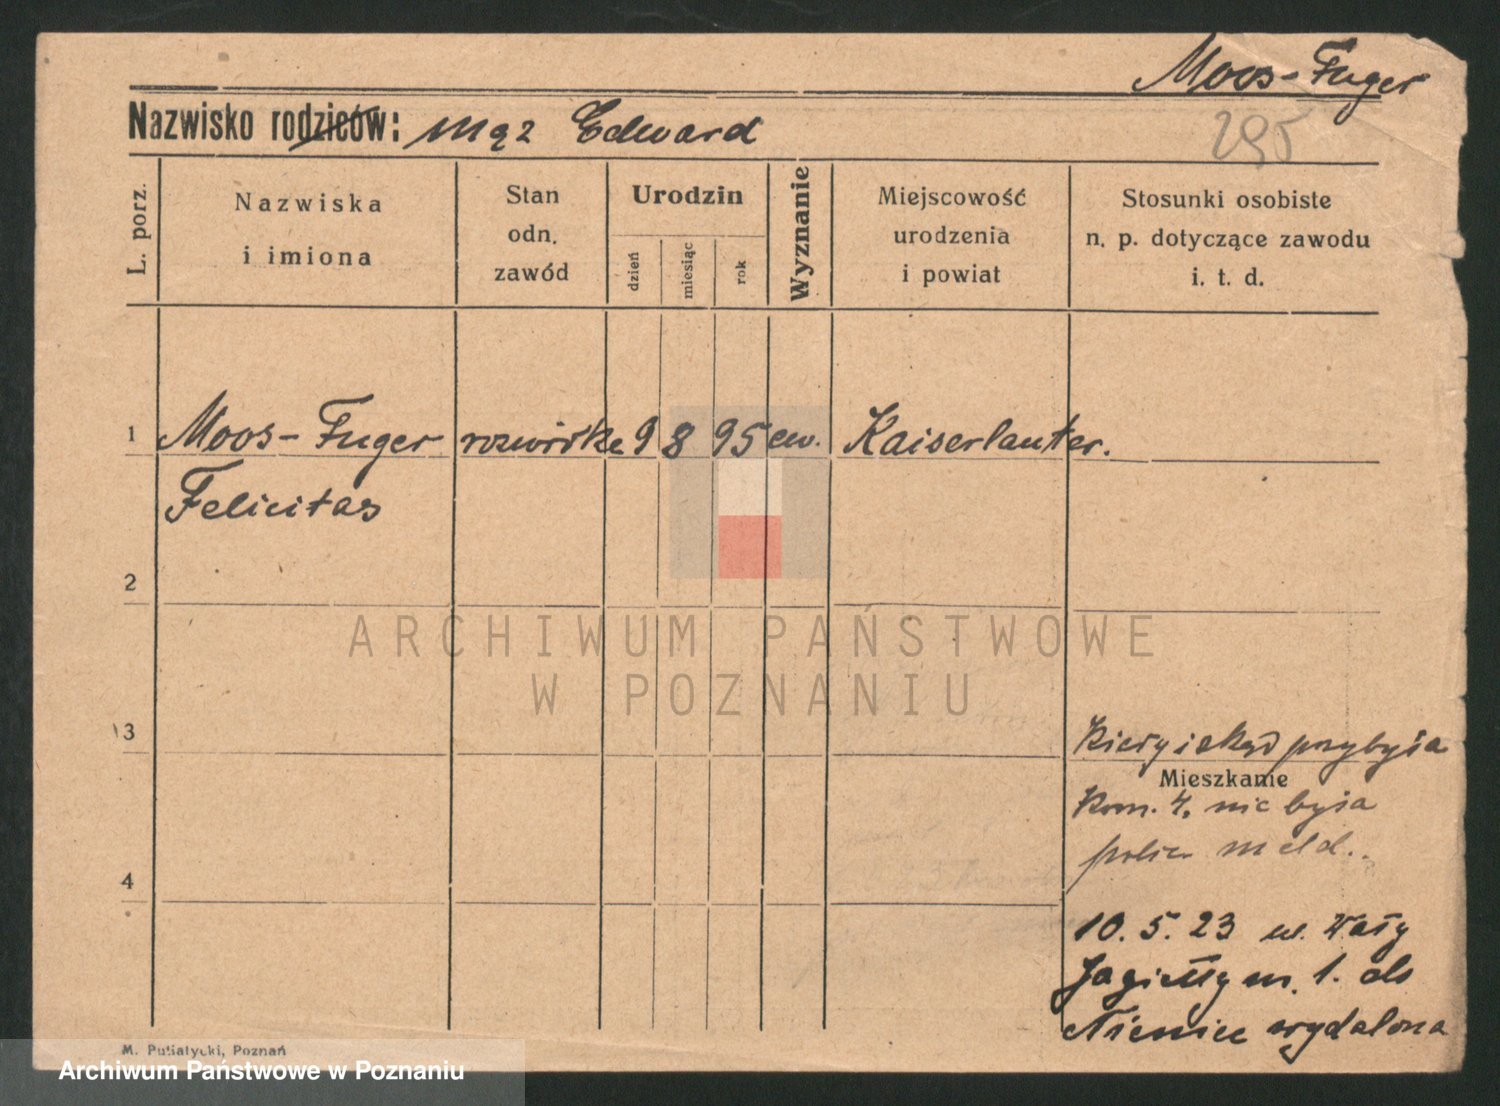 Moos-Fuger
Nazwisko rodziców: mąż Edward
295
L. porz.
Nazwiska
i imiona
Stan
odn.
zawód
Urodzin
dzień
miesiąc
rok
Wyznanie
Miejscowość
urodzenia
i powiat
Stosunki osobiste
n. p. dotyczące zawodu
i. t. d.
1 Moos-Fuger rozwódka 9 8 95 ew. Kaiserlauter.
Felicitas
2
ARCHIWUM PAŃSTWOWE
W POZNANIU
3
Kiedy i skąd przybyła
Mieszkanie
Kom. 4. nie była
polic. meld.
4
10. 5. 23 w. Wały
Jagiełły m. 1. do
Niemiec wydalona
M. Putiatycki, Poznań
Archiwum Państwowe w Poznaniu